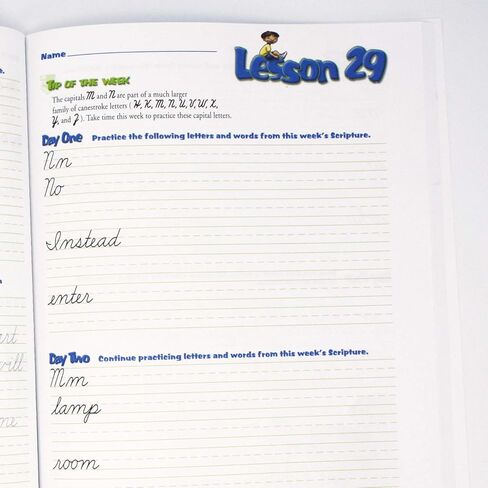 Name
Lesson 29
Tip of the Week
The capitals M and N are part of a much larger
family of canestroke letters ( H, K, M, N, U, V, W, X,
Y, and Z ). Take time this week to practice these capital letters.
Day One Practice the following letters and words from this week's Scripture.
Nn
No
Instead
enter
Day Two Continue practicing letters and words from this week's Scripture.
Mm
lamp
room